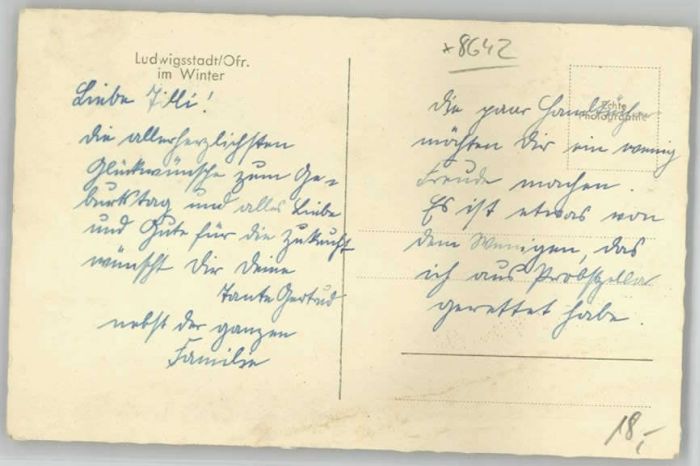 Ludwigsstadt/Ofr.
im Winter
Liebe Tilli!
Die allerherzlichsten
Glückwünsche zum Ge-
burtstag und alles Liebe
und Gute für die Zukunft
wünscht Dir Deine
Tante Gertrud
nebst der ganzen
Familie
*8642
Echte
Photographie
Die paar
möchten Dir ein wenig
Freude machen.
Es ist etwas von
dem Wenigen, das
ich aus Probstzella
gerettet habe.
18,-